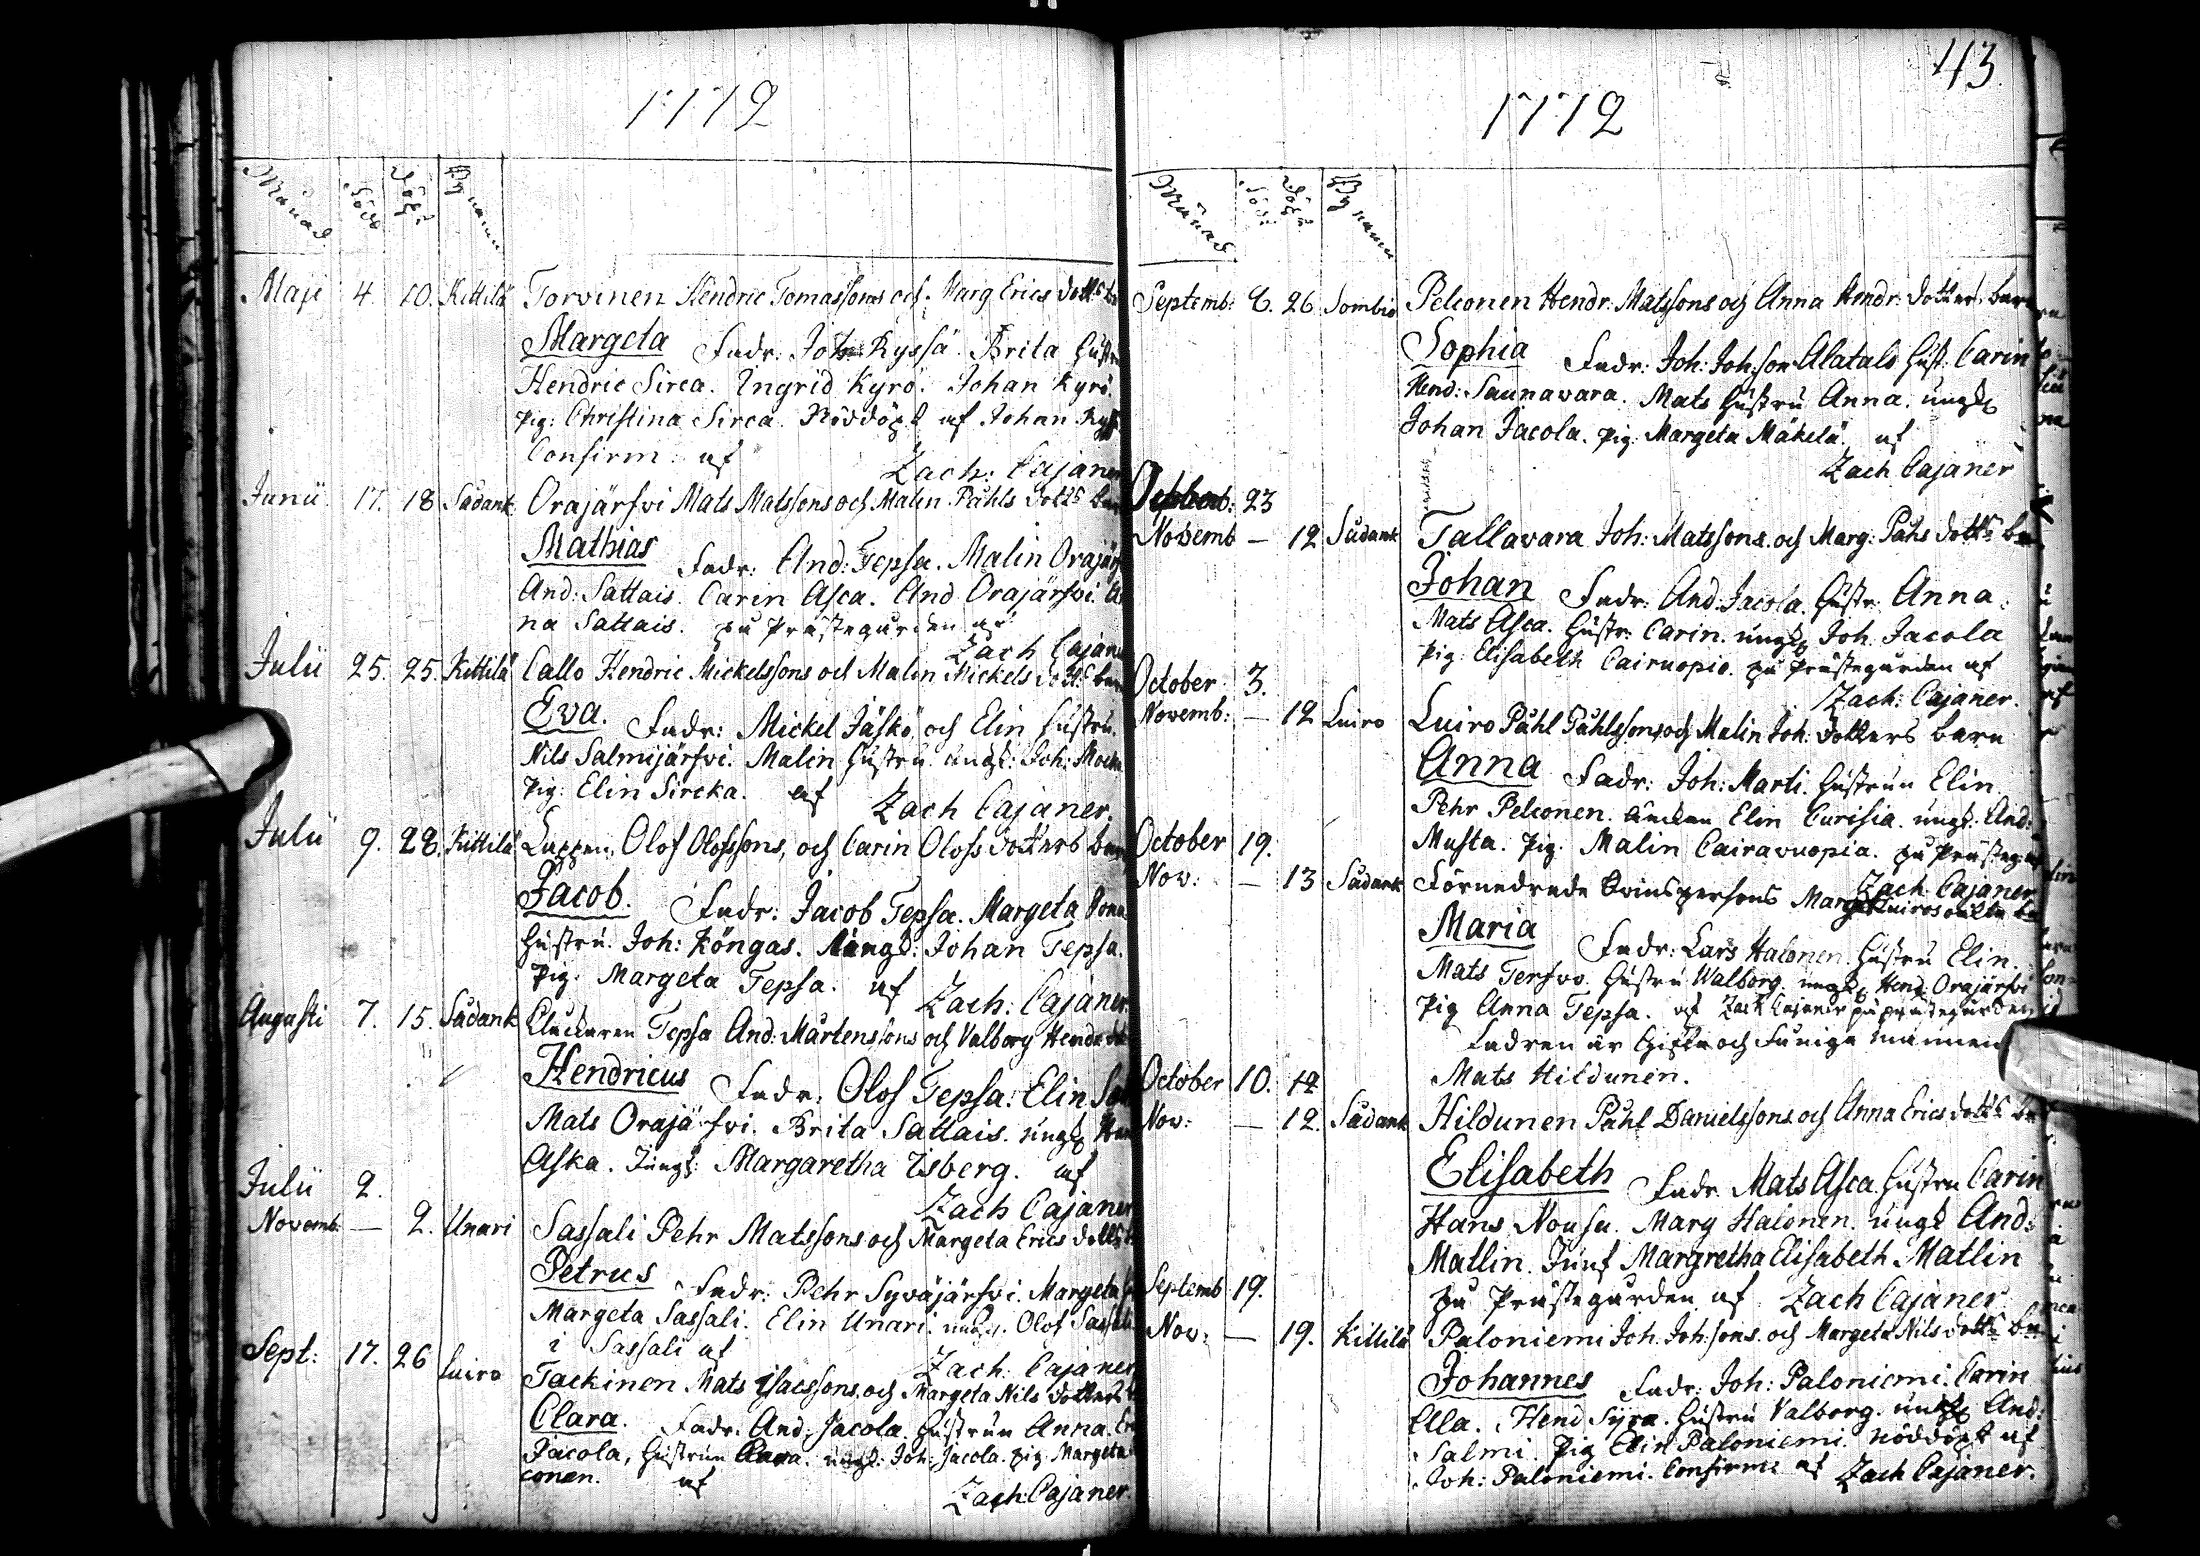 1772
Månad Född Döpt Bynamn
Maji 4. 10. Kittilä Torvinen Hendric Tomassons och Marg Erics dott:s
Margeta Fadr: Joh: Kyssä. Brita hustru
Hendric Sirca. Ingrid Kyrö. Johan Kyrö.
pig: Christina Sirca. Nöddöpt af Johan
Confirm: af Zach: Cajaner
Junii 17. 18 Sådank Orajärfvi Mats Matssons och Malin Påhls dott:s barn
Mathias Fadr: And: Tepsa. Malin Orajärf
And: Sattais. Carin Asca. And Orajärfvi. An
na Sattais. på Prästegården af
Zach Cajaner
Julii 25. 25. Kittilä Callo Hendric Mickelssons och Malin Mickels dott:s barn
Eva. Fadr: Mickel Jäskö och Elin hustru.
Nils Salmijärfvi. Malin hustru. ungk: Joh:
pig: Elin Sircka. af Zach Cajaner.
Julii 9. 28. Kittilä Olof Olofssons, och Carin Olofs dotters barn
Jacob. Fadr: Jacob Tepsa. Margeta
hustru. Joh: Köngas. ungk: Johan Tepsa.
Pig. Margeta Tepsa. af Zach: Cajaner
Augusti 7. 15. Sådank Cluckaren Tepsa And: Mårtenssons och Valborg Hendr:
Hendricus Fadr: Olof Tepsa: Elin
Mats Orajärfvi. Brita Sattais. ungk
Aska. Jungf: Margaretha Isberg. af
Zach Cajaner
Julii 2.
Novemb: — 2. Unari Sassali Pehr Matssons och Margeta Erics dott:s
Petrus Fadr: Pehr Syväjärfvi. Margeta
Margeta Sassali. Elin Unari. ungk. Olof Sassali
i Sassali af Zach: Cajaner
Sept: 17. 26 Luiro Tackinen Mats Isacssons, och Margeta Nils dotters
Clara. Fadr: And: Jacola. hustrun Anna.
Jacola, hustrun Clara. ungk: Joh: Jacola. pig. Margeta
conen. af Zach: Cajaner.
43
1772
Månad Född Döpt Bynamn
Septemb: 6. 26 Sombio Pelconen Hendr: Matssons och Anna Hendr: dotters barn
Sophia Fadr: Joh: Joh:son Alatalo hust: Carin
Hend: Saunavara. Mats hustru Anna. ungk
Johan Jacola. pig: Margeta Mäkelä. af
Zach Cajaner
23
Novemb — 12 Sådank Tallavara Joh: Matssons och Marg: Påhs dott:s
Johan Fadr: And: Jacola. hustr: Anna.
Mats Asca. hustr: Carin. ungk Joh. Jacola
pig: Elisabeth Cairuopio. på prästegården af
Zach: Cajaner.
October 3.
Novemb: — 12 Luiro Luiro Påhl Påhlssons och Malin Joh: dotters barn
Anna Fadr: Joh: Marti. hustrun Elin.
Pehr Pelconen. änckan Elin Curisia. ungk: And:
Musta. pig. Malin Cairavuopia. på Prästeg
Zach: Cajaner
October 19.
Nov: — 13 Sådank Förnedrade Qvinspersons Margeta Luiros
Maria Fadr: Lars Halonen. hustru Elin.
Mats Terfvo. hustru Walborg. ungk Hend: Orajärfvi
pig Anna Tepsa. af Zach Cajaner på prästegården
Fadren är Gifte och Funige mannen
Mats Hildunen.
October 10. 12
Nov: — 12. Sådank Hildunen Påhl Danielssons och Anna Erics dott:s
Elisabeth Fadr Mats Asca hustru Carin
Hans Nousu. Marg Halonen. ungk And:
Matlin. Junf Margretha Elisabeth Matlin
på Prästegården af Zach Cajaner
Septemb 19.
Nov: — 19. Kittilä Paloniemi Joh. Joh:sons och Margeta Nils dott:s
Johannes Fadr: Joh: Paloniemi. Carin
Ella. Hend Syra. hustru Valborg. ungk And:
Salmi. Pig Elin Paloniemi. nöddöpt af
Joh: Paloniemi. Confirme af Zach Cajaner.